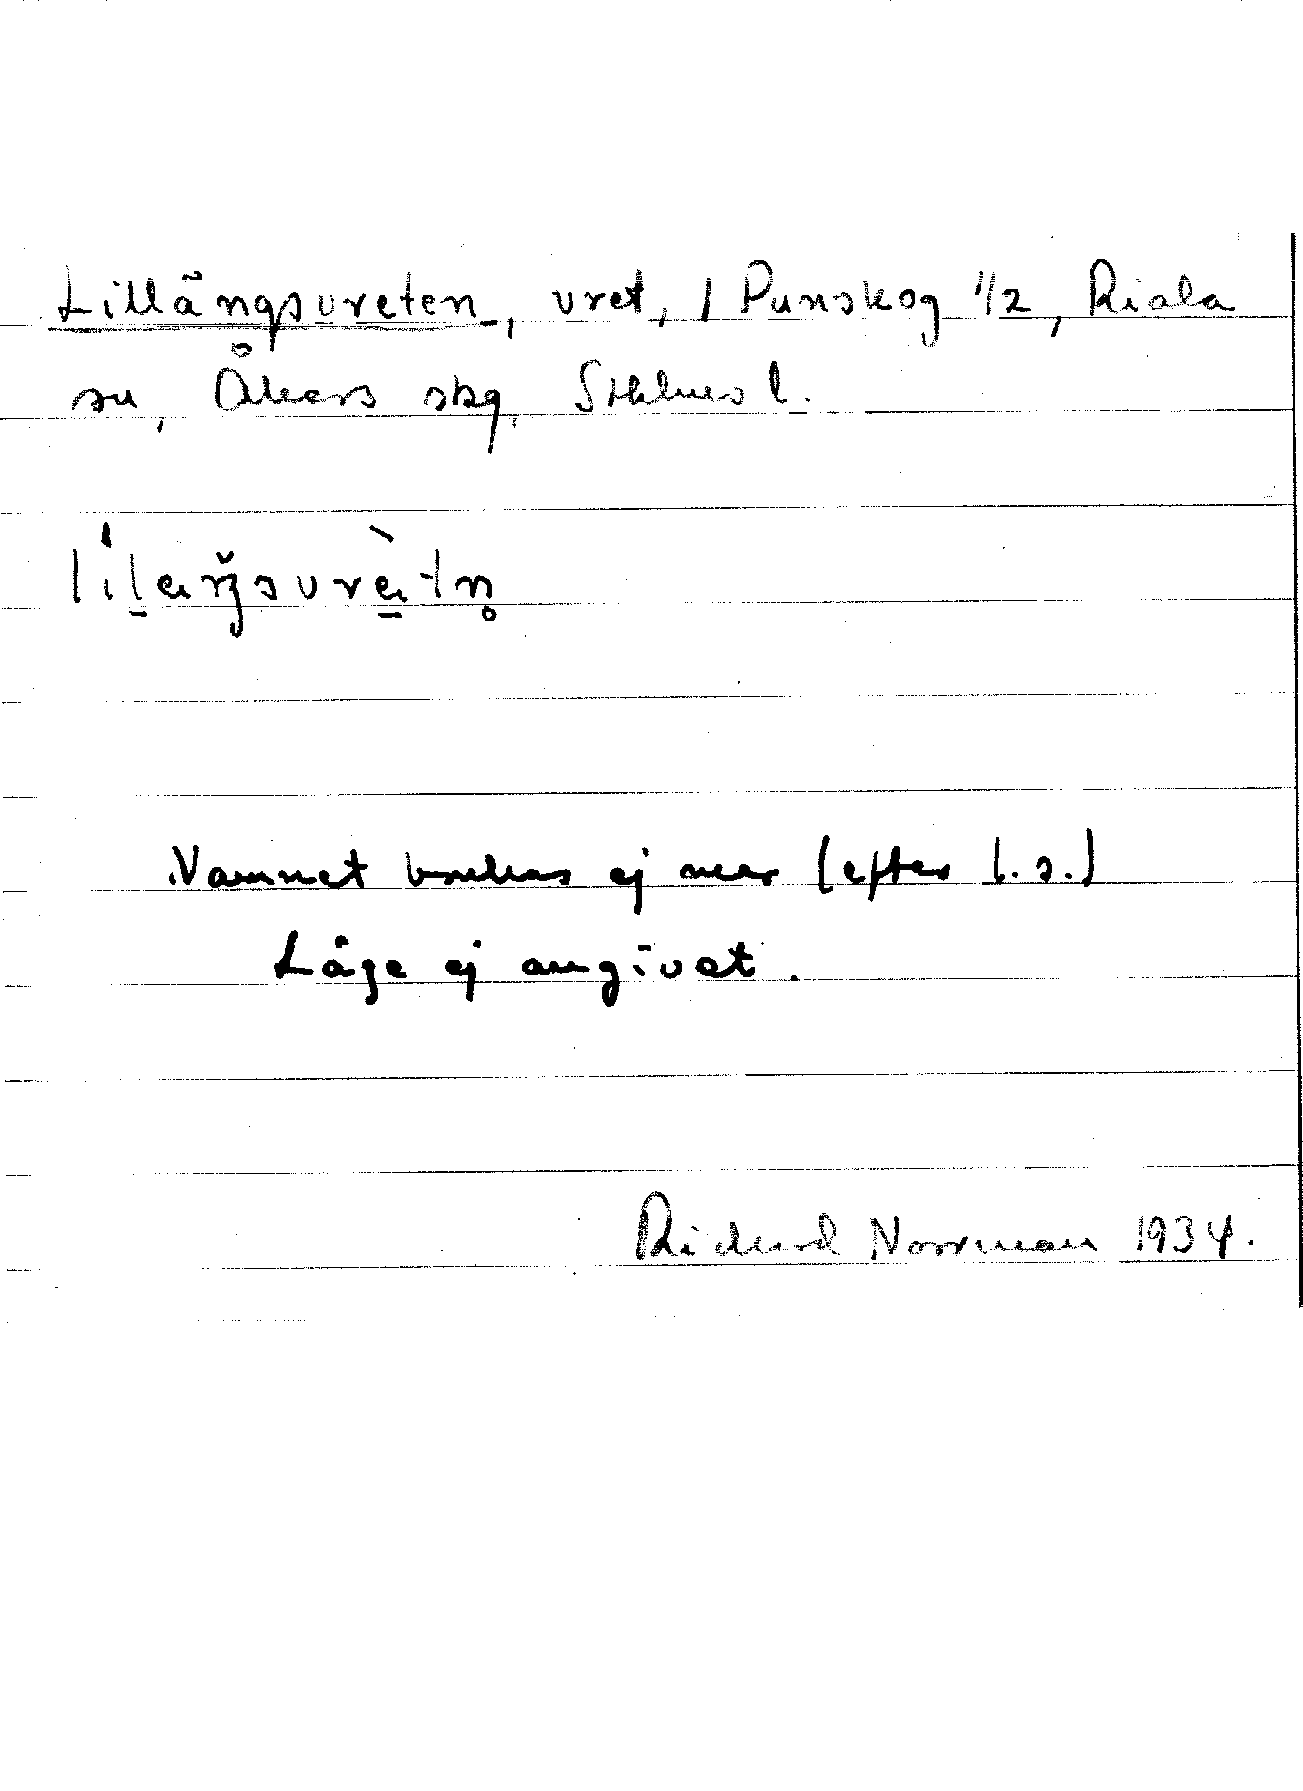 Lillängsvreten, vret, / Punskog 1/2, Riala
sn, Åkers skg, Sthlms l.
Namnet brukas ej mer (efter l. s.)
Läge ej angivet.
Richard Norrman 1934.